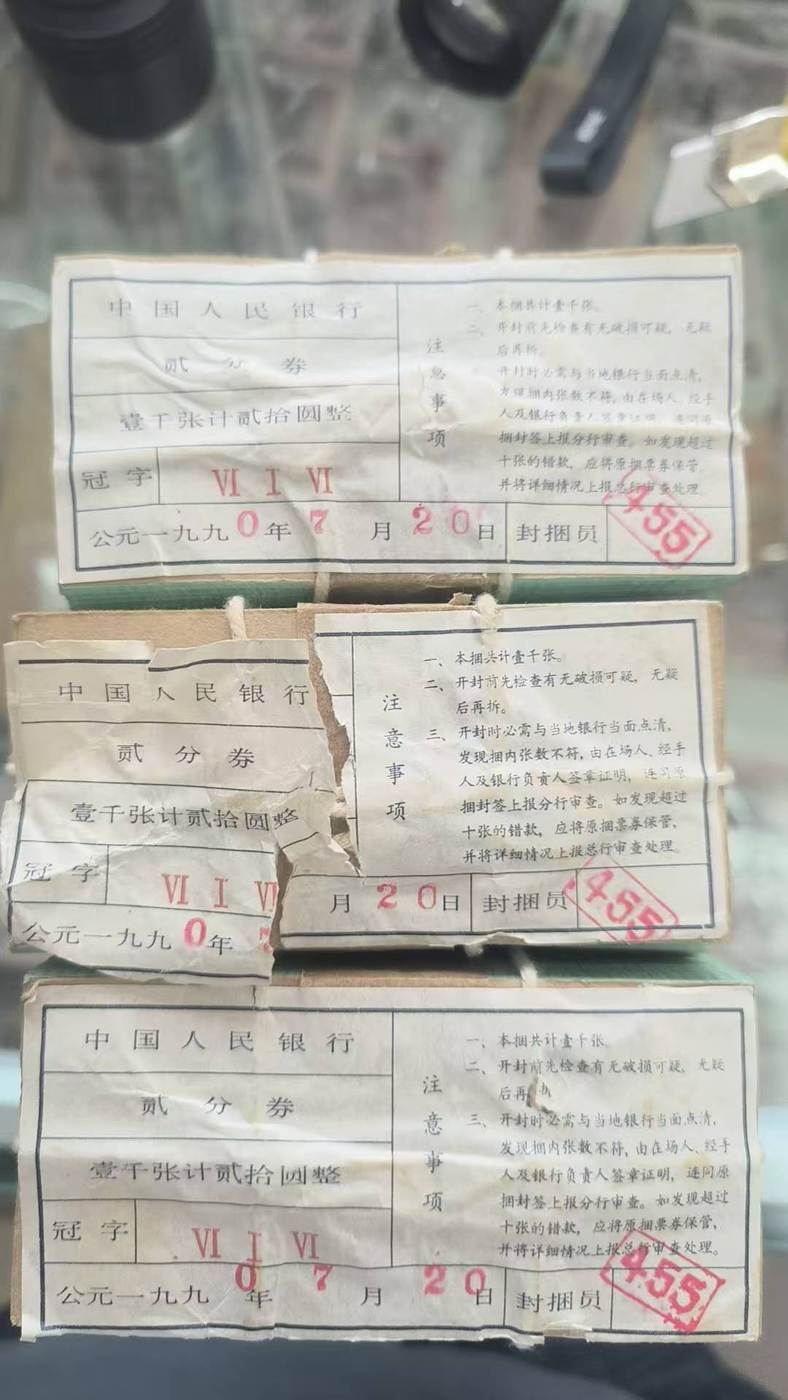 中国人民银行
贰分券
壹千张计贰拾圆整
冠字 Ⅵ Ⅰ Ⅵ
公元一九九0年7月20日 封捆员 455
注意事项
一、本捆共计壹千张。
二、开封前先检查有无破损可疑，无疑
后再拆。
开封时必需与当地银行当面点清，
发现捆内张数不符，由在场人、经手
人及银行负责人签章证明，连同原
捆封签上报分行审查。如发现超过
十张的错款，应将原捆票券保管，
并将详细情况上报总行审查处理
中国人民银行
贰分券
壹千张计贰拾圆整
冠字 Ⅵ Ⅰ Ⅵ
公元一九九0年 月20日 封捆员 455
注意事项
一、本捆共计壹千张。
二、开封前先检查有无破损可疑，无疑
后再拆。
三、开封时必需与当地银行当面点清，
发现捆内张数不符，由在场人、经手
人及银行负责人签章证明，连同原
捆封签上报分行审查。如发现超过
十张的错款，应将原捆票券保管，
并将详细情况上报总行审查处理。
中国人民银行
贰分券
壹千张计贰拾圆整
冠字 Ⅵ Ⅰ Ⅵ
公元一九九0年7月20日 封捆员 455
注意事项
一、本捆共计壹千张。
二、开封前先检查有无破损可疑，无疑
后再拆
三、开封时必需与当地银行当面点清，
发现捆内张数不符，由在场人、经手
人及银行负责人签章证明，连同原
捆封签上报分行审查。如发现超过
十张的错款，应将原捆票券保管，
并将详细情况上报总行审查处理。